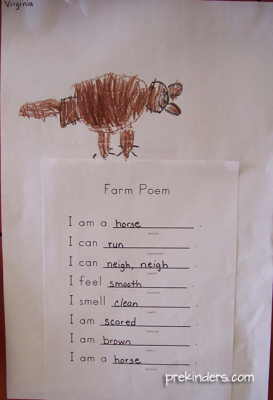 Virginia
Farm Poem
I am a horse.
I can run.
I can neigh, neigh.
I feel smooth.
I smell clean.
I am scored.
I am brown.
I am a horse.
prekinders.com